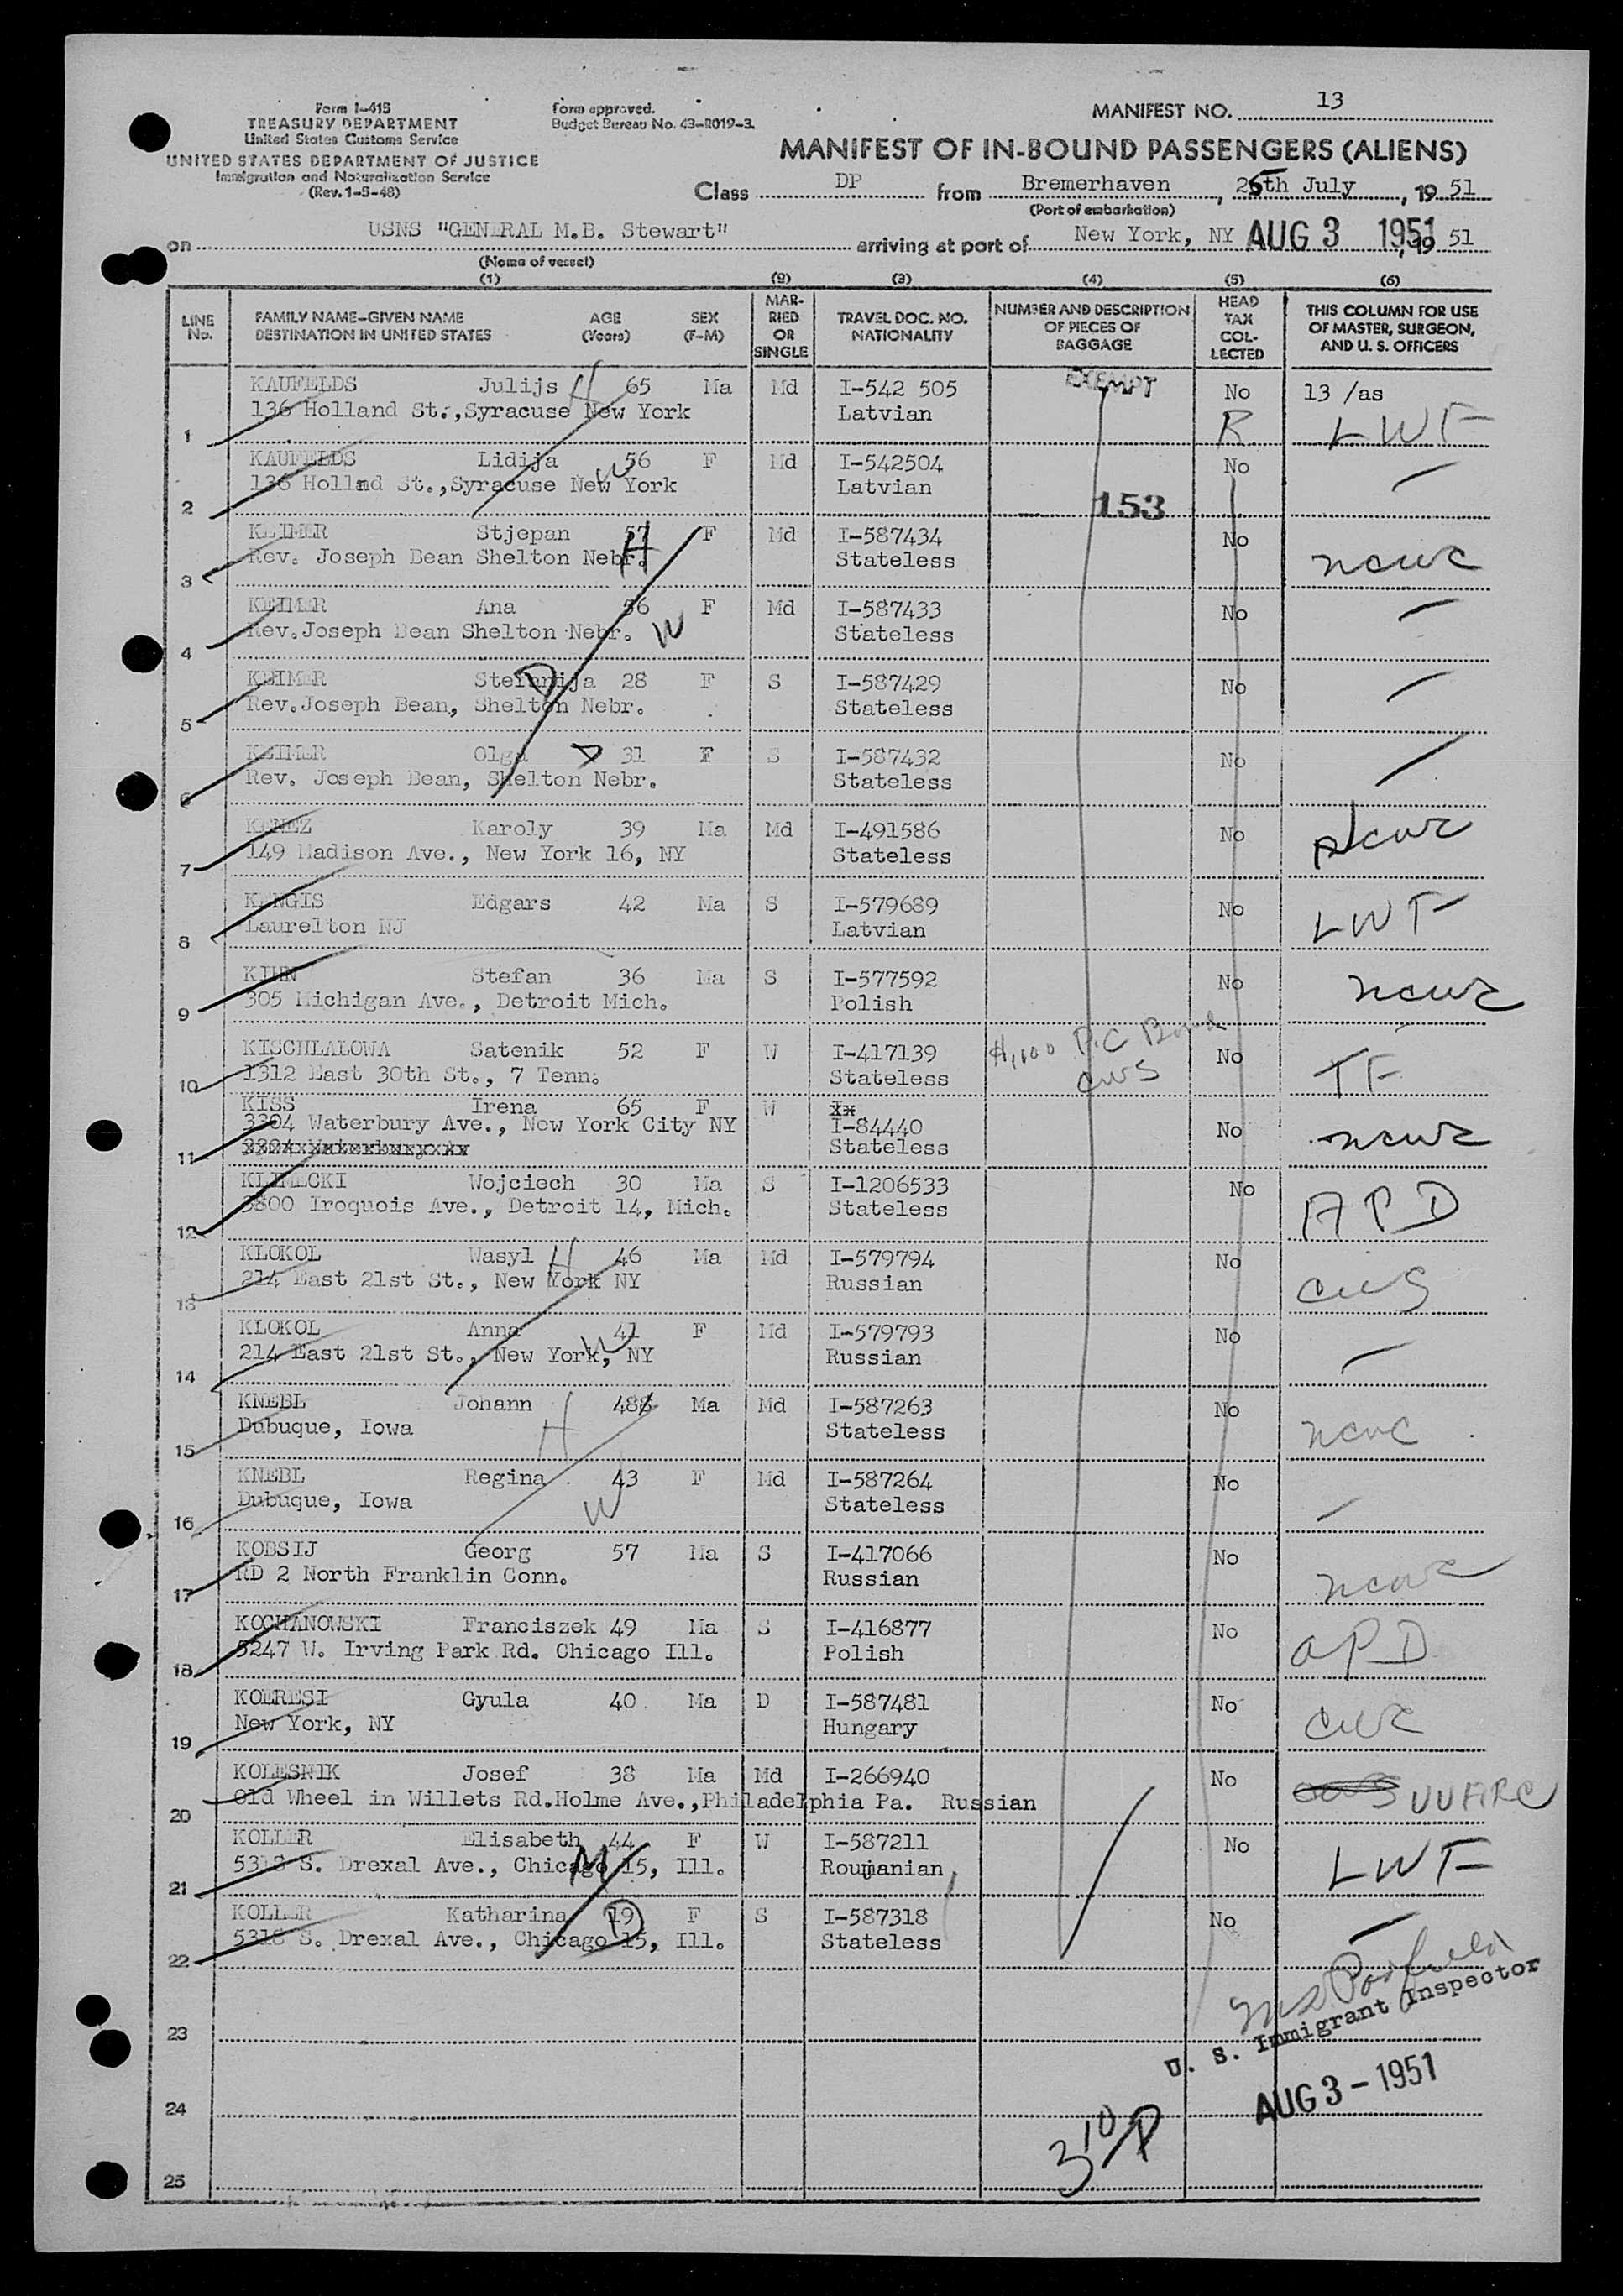 Form I-418
TREASURY DEPARTMENT
United States Customs Service
UNITED STATES DEPARTMENT OF JUSTICE
Immigration and Naturalization Service
(Rev. 1-5-48)
Form approved.
Budget Bureau No. 43-R019-3.
MANIFEST NO. 13
MANIFEST OF IN-BOUND PASSENGERS (ALIENS)
Class DP from Bremerhaven, 25th July, 19 51
(Port of embarkation)
on USNS "GENERAL M.B. Stewart" arriving at port of New York, NY AUG 3 1951, 19 51
(Name of vessel)
(1) (2) (3) (4) (5) (6)
LINE No. FAMILY NAME-GIVEN NAME DESTINATION IN UNITED STATES AGE (Years) SEX (F-M) MARRIED OR SINGLE TRAVEL DOC. NO. NATIONALITY NUMBER AND DESCRIPTION OF PIECES OF BAGGAGE HEAD TAX COLLECTED THIS COLUMN FOR USE OF MASTER, SURGEON, AND U. S. OFFICERS
KAUFELDS Julijs H 65 Ma Md I-542 505 EXEMPT No 13 /as
1 136 Holland St.,Syracuse New York Latvian R LWF
KAUFELDS Lidija 56 F Md I-542504 No
2 136 Hollnd St.,Syracuse New York W Latvian 153
KEIMER Stjepan 57 F Md I-587434 No
3 Rev. Joseph Bean Shelton Nebr. H Stateless ncwc
KEIMER Ana 56 F Md I-587433 No
4 Rev.Joseph Bean Shelton Nebr. W Stateless
KEIMER Stefanija 28 F S I-587429 No
5 Rev.Joseph Bean, Shelton Nebr. D Stateless
KEIMER Olga D 31 F S I-587432 No
6 Rev. Joseph Bean, Shelton Nebr. Stateless
KENEZ Karoly 39 Ma Md I-491586 No
7 149 Madison Ave., New York 16, NY Stateless ncwc
KENGIS Edgars 42 Ma S I-579689 No
8 Laurelton NJ Latvian LWF
KIHN Stefan 36 Ma S I-577592 No
9 305 Michigan Ave., Detroit Mich. Polish ncwc
KISCHLALOWA Satenik 52 F W I-417139 $1,000 P.C Bond No
10 1312 East 30th St., 7 Tenn. Stateless CWS TF
KISS Irena 65 F W Ix
3304 Waterbury Ave., New York City NY I-84440 No
11 Stateless ncwc
KLIMECKI Wojciech 30 Ma S I-1206533 No
12 3800 Iroquois Ave., Detroit 14, Mich. Stateless APD
KLOKOL Wasyl H 46 Ma Md I-579794 No
13 214 East 21st St., New York NY Russian CWS
KLOKOL Anna 41 F Md I-579793 No
14 214 East 21st St., New York, NY W Russian
KNEBL Johann 488 Ma Md I-587263 No
15 Dubuque, Iowa H Stateless ncwc
KNEBL Regina 43 F Md I-587264 No
16 Dubuque, Iowa W Stateless
KOBSIJ Georg 57 Ma S I-417066 No
17 RD 2 North Franklin Conn. Russian ncwc
KOCHANOWSKI Franciszek 49 Ma S I-416877 No
18 5247 W. Irving Park Rd. Chicago Ill. Polish APD
KOERESI Gyula 40 Ma D I-587481 No
19 New York, NY Hungary
KOLESNIK Josef 38 Ma Md I-266940 No
20 Old Wheel in Willets Rd.Holme Ave.,Philadelphia Pa. Russian UUARC
KOLLER Elisabeth 44 F W I-587211 No
21 5318 S. Drexal Ave., Chicago 15, Ill. M Roumanian LWF
KOLLER Katharina 19 F S I-587318 No
22 5318 S. Drexal Ave., Chicago 15, Ill. D Stateless
23
U. S. Immigrant Inspector
24
AUG 3 - 1951
3 10/P
25